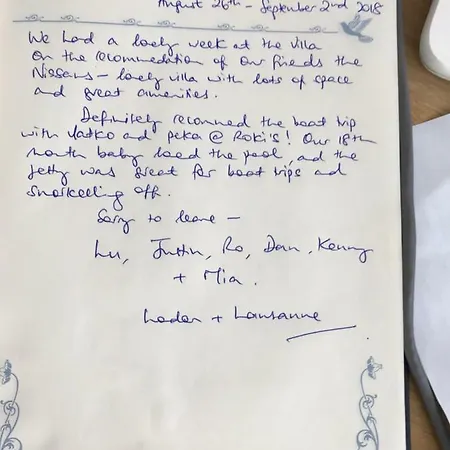 August 26th - September 2nd 2018
We had a lovely week at the villa
on the recommedation of our friends the
Nissens - lovely villa with lots of space
and great amenities.
Definitely recommed the boat trip
with Vatko and peka @ Roki's! Our 18th
month baby loved the pool, and the
jetty was great for boat trips and
snorkelling off.
Sorry to leave -
Lu, Justin, Ro, Dan, Kenny
+ Mia.
London + Lausanne